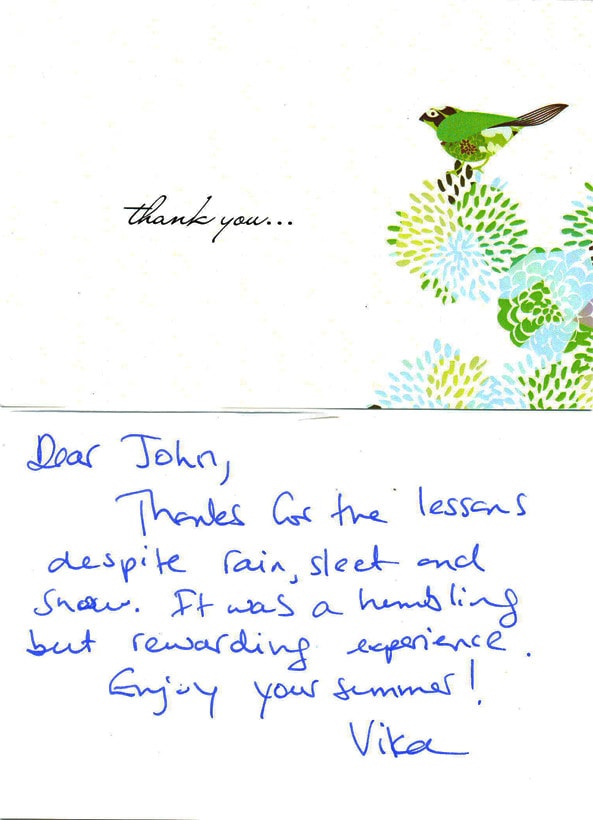 thank you...
Dear John,
Thanks for the lessons
despite rain, sleet and
snow. It was a humbling
but rewarding experience.
Enjoy your summer!
Vika